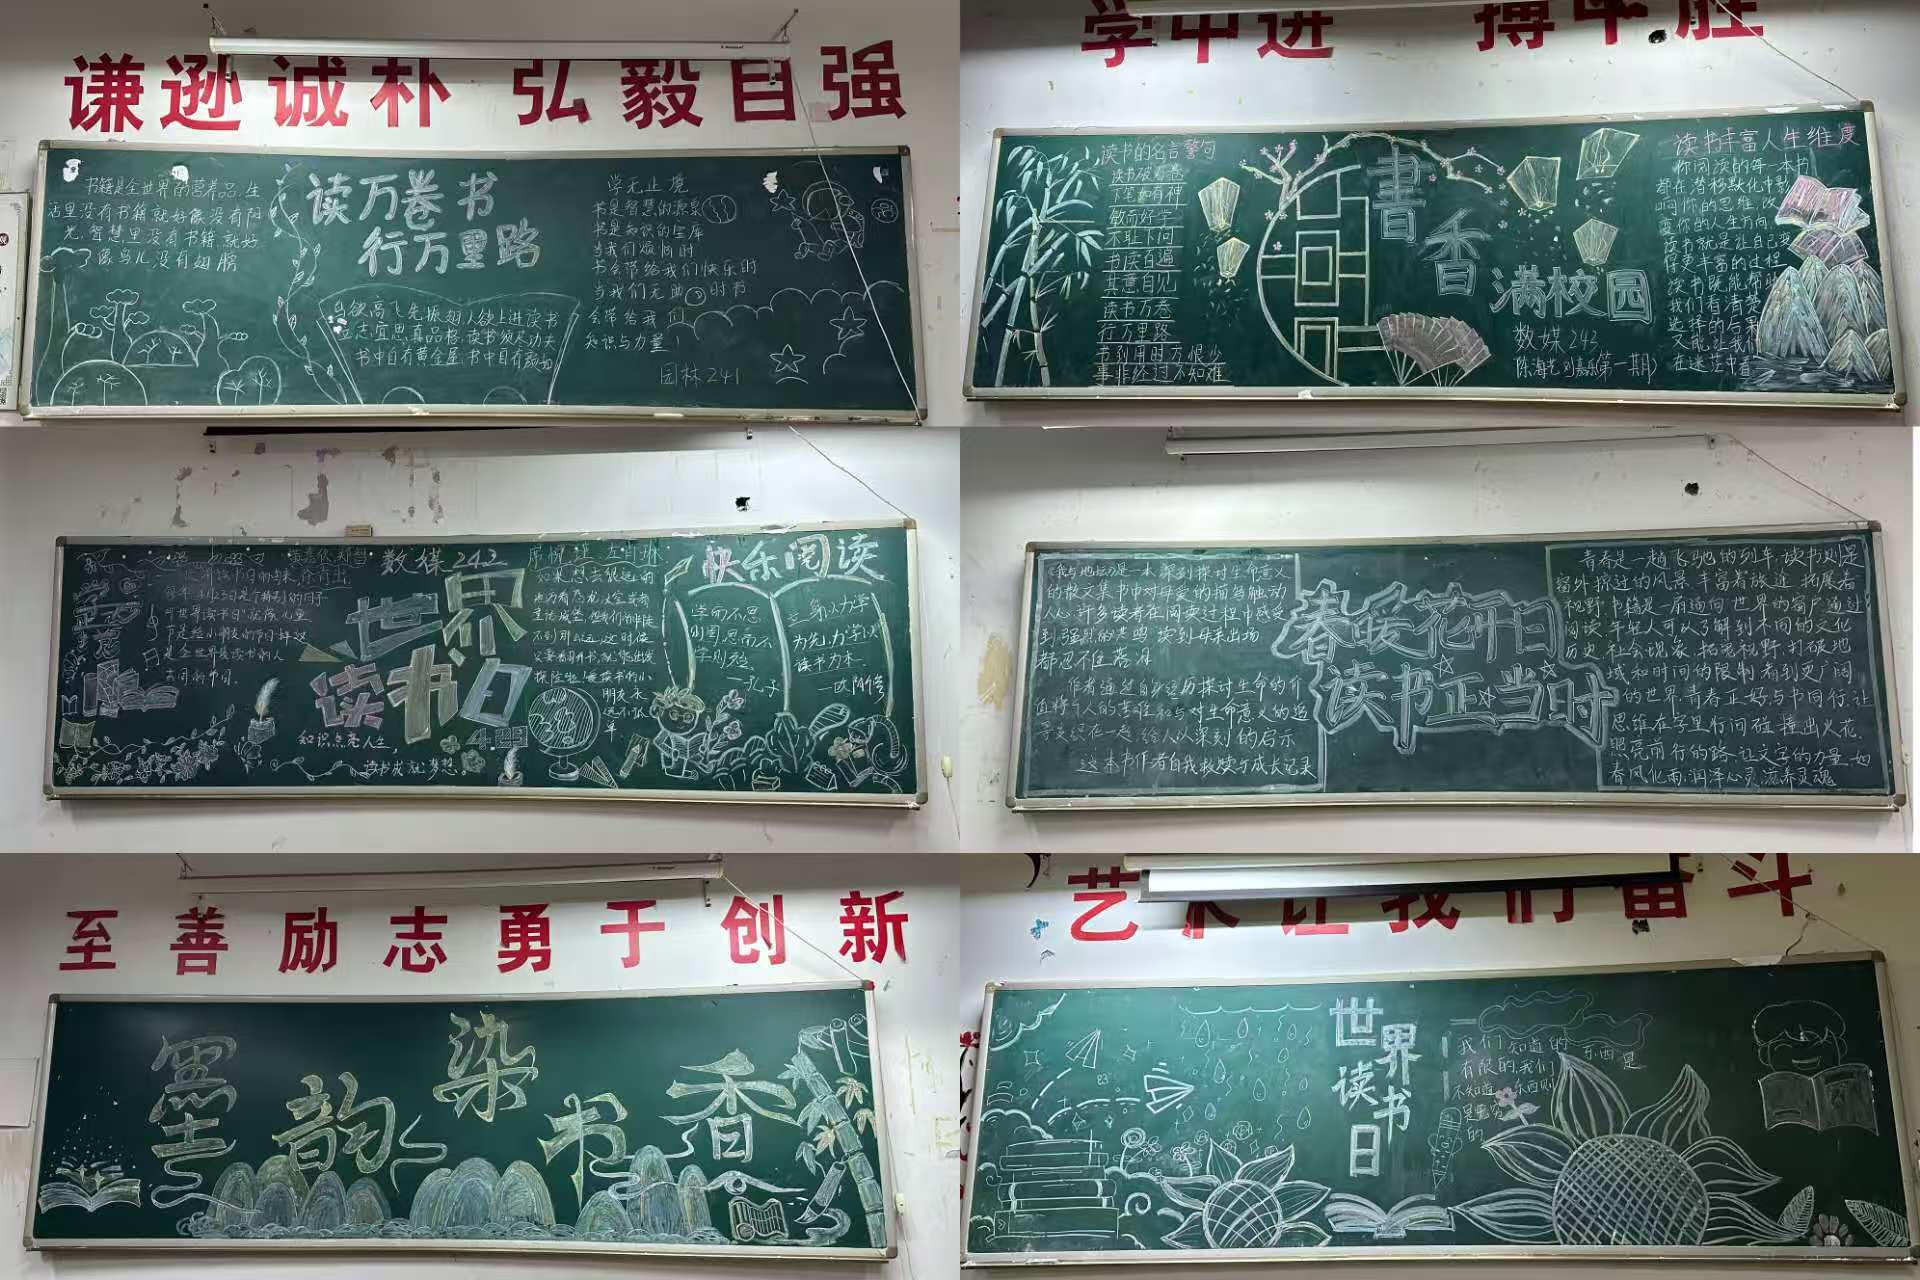 谦逊诚朴 弘毅自强
书籍是全世界的营养品,生
活里没有书籍,就好像没有阳
光,智慧里没有书籍,就好
了像鸟儿没有翅膀
读万卷书
行万里路
鸟欲高飞先振翅人欲上进读书
志宜思真品格,读书须尽功夫
书中自有黄金屋 书中自有颜如
学无止境
书是智慧的源泉
书是知识的宝库
当我们烦恼时
书会带给我们快乐的
当我们无助 时书
会带给我们
知识与力量!
园林241
学中进 搏中胜
读书的名言警句
读书破万卷
下笔如有神
敏而好学
不耻下问
书读百遍
其意自见
读书万卷
行万里路
书到用时方恨少
事非经过不知难
書香
满校园
数媒243
陈海艺 刘嘉乐(第一期)
读书丰富人生维度
你阅读的每一本书
都在潜移默化中影
响你的思维,改
变你的人生方向,
读书就是让自己变
得更丰富的过程
读书既能帮助
我们看清楚
选择的后果
又能让我们
在迷茫中看
数媒242
世界
读书日
知识点亮人生,
读书成就梦想。
每年4月23日是个特别的日子
"世界读书日"它除儿童
是全世界读书的人
共同的节日。
如果想去很远的
不到那么远,这时候
朋友永
远不孤
单
快乐阅读
学而不思
则罔思而不
学则殆。
—孔子
立身以力学
为先,力学以
读书为本.
—欧阳修
《我与地坛》是一本深刻探讨生命意义
的散文集书中对母爱的描写触动
人心,许多读者在阅读过程中感受
到强烈的共鸣 读到母亲出场
都忍不住落泪
作者通过自身经历探讨生命的价
值将个人的苦难和与对生命意义的追
寻交织在一起,给人以深刻的启示
这本书作者自我救赎与成长记录
春暖花开日
读书正当时
青春是一趟飞驰的列车,读书则是
窗外掠过的风景,丰富着旅途,拓展着
视野.书籍是一扇通向世界的窗户通过
阅读,年轻人可以了解到不同的文化
历史,社会现象,拓宽视野,打破地
域和时间的限制,看到更广阔
的世界.青春正好,与书同行,让
思维在字里行间碰撞出火花,
照亮前行的路,让文字的力量,如
春风化雨,润泽心灵,滋养灵魂
至善励志勇于创新
墨韵染书香
艺术让我们奋斗
世界
读书
日
我们知道的东西是
有限的,我们
不知道的东西则
是无穷
的